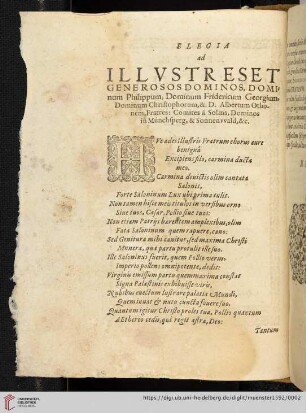 ELEGIA
ad
ILLVSTRES ET
GENEROSOS DOMINOS, DOMI
num Philippum, Dominum Fridericum Georgium,
Dominum Christophorum, & D. Albertum Otho-
nem, Fratres: Comites à Solms, Dominos
in Müntzsperg, & Sonneuvald, &c.
HVc ades illustris Fratrum chorus aure
benigna
Excipiens filo, carmina ducta
meo.
Carmina deuictis olim cantata
Salonis,
Forte Saloninum Lux ubi prima tulit.
Non tamen hisce meis titulos in versibus orno
Siue tuos, Cæsar, Pollio siue tuos:
Non etiam Patrijs hærestem amplexibus, olim
Fata Saloninum quem rapuere, cano:
Sed Genitura mihi canitur, sed maxima Christi
Munera, quæ partu protulit ille suo.
Ille Saloninus fuerit, quem Pollio verum
Imperio pollens omnipotente, dedit:
Virginis emissum partu quem maxima constat
Signa Palæstinis exhibuisse viris,
Nubibus euectum lustrare palatia Mundi,
Quem iuuat & nutu cuncta fouere suo.
Quantum igitur Christo proles tua, Pollio quantum
Æthereo cedis, qui regit astra, Deo:
Tantum
UNIVERSITÄTS-
BIBLIOTHEK
HEIDELBERG
https://digi.ub.uni-heidelberg.de/diglit/muenster1592/0002